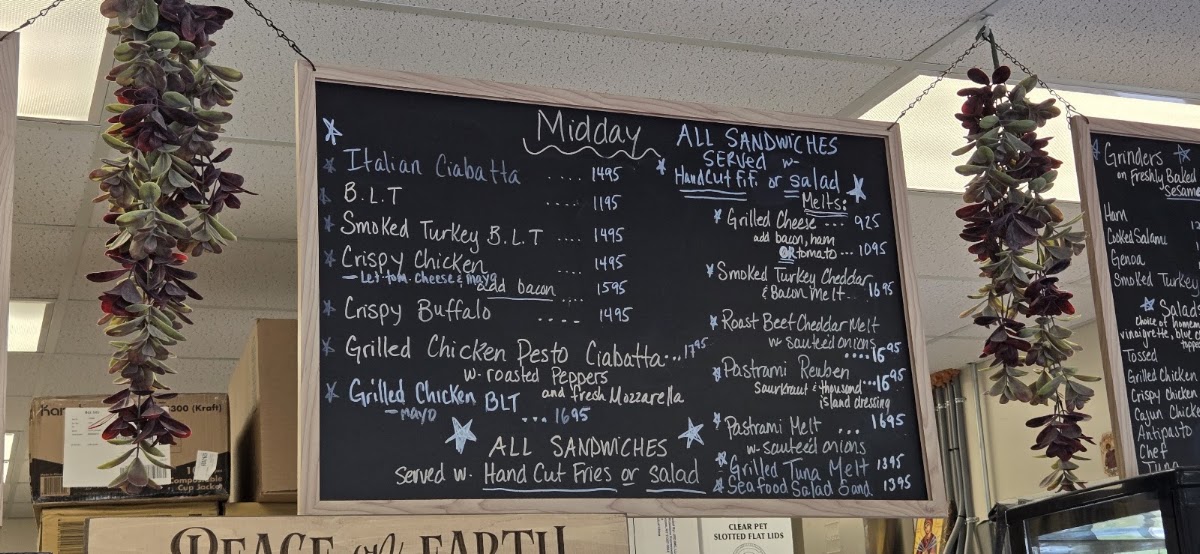 Midday
Italian Ciabatta .... 1495
B.L.T .... 1195
Smoked Turkey B.L.T .... 1495
Crispy Chicken .... 1495
- Let tom. cheese & mayo
add bacon .... 1595
Crispy Buffalo .... 1495
Grilled Chicken Pesto Ciabatta... 1795
w- roasted Peppers
and Fresh Mozzarella
Grilled Chicken BLT
- mayo ... 1695
ALL SANDWICHES
served w. Hand Cut Fries or salad
ALL SANDWICHES
SERVED w-
Hand Cut F.F. or salad
Melts:
Grilled Cheese ... 925
add bacon, ham
OR tomato ... 1095
Smoked Turkey Cheddar
& Bacon Melt... 1695
Roast Beef Cheddar Melt
w- sauteed onions
.... 1695
Pastrami Reuben
Saurkraut & thousand ... 1695
island dressing
Pastrami Melt ... 1695
w- sauteed onions
Grilled Tuna Melt 1395
Seafood Salad Sand 1395
Grinders
on Freshly Baked
Sesame
Ham
Cooked Salami
Genoa
Smoked Turkey
Salads
Choice of homem
vinaigrette, blue c
Tossed
Grilled Chicken
Crispy Chicken
Cajun Chick
Antipasto
Chef
Tuna
300 (Kraft)
Compostable
Cup Jacket
PEACE on EARTH
CLEAR PET
SLOTTED FLAT LIDS